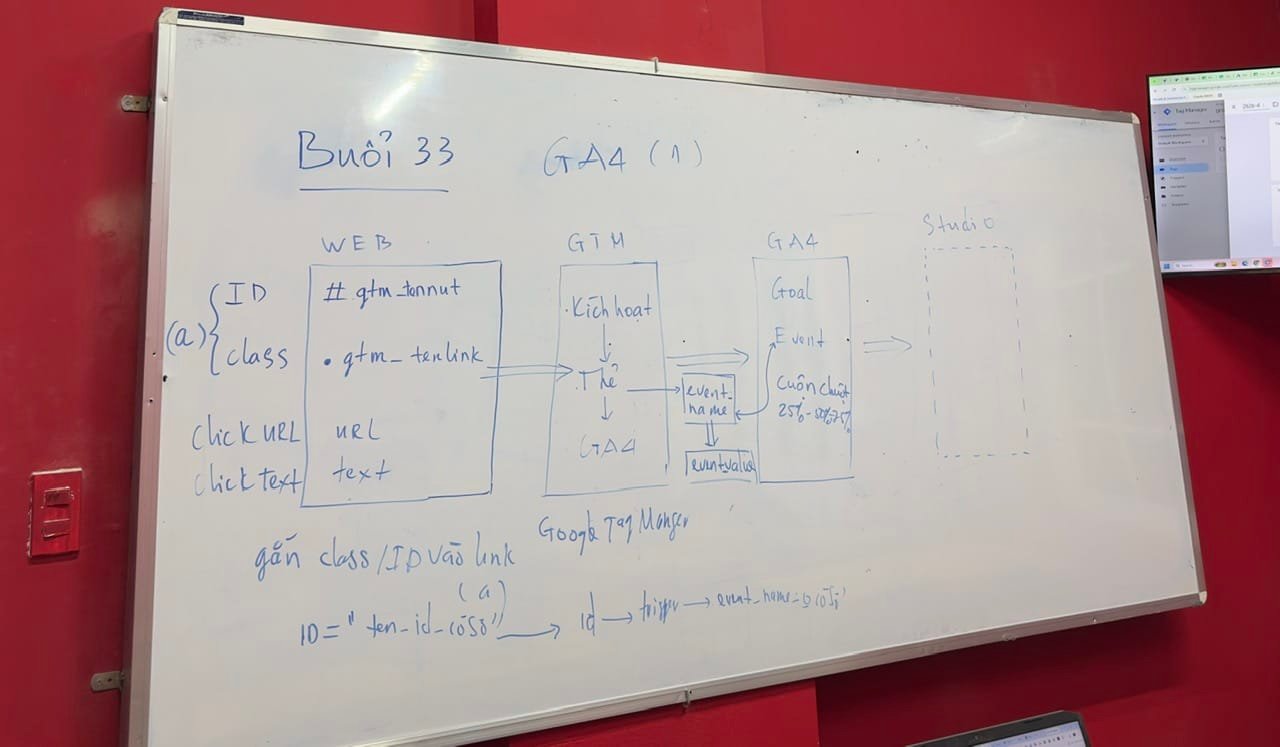 Buổi 33
GA4 (1)
WEB
GTM
GA4
Studio
(a)
ID
# gtm_tennut
class
. gtm_tenlink
click URL
URL
click Text
text
. Kích hoạt
. Thẻ
GA4
event_
name
eventvalue
Goal
Event
Cuộn chuột
25% - 50% - 75%
Google Tag Manger
gắn class/ID vào link
(a)
ID = " ten_id_cơ sở"
id
event_name
Tag Manager